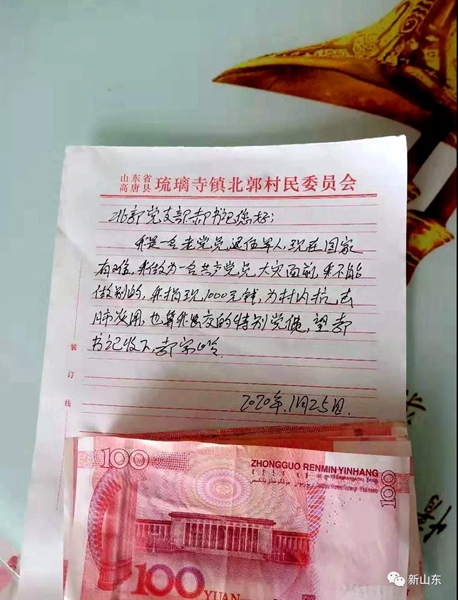 山东省
高唐县 琉璃寺镇北郭村民委员会
北郭党支部郝书记您好:
我是一名老党员,退伍军人,现在国家
有难,我做为一名共产党员,大灾面前,我不能
做别的,我捐现1000元钱,为村内抗击
肺炎用,也算我要交的特别党费,望郝
书记收下,郝宗岭
2020年.1月25日.
装订线
100
ZHONGGUO RENMIN YINHANG
100
YUAN
新山东